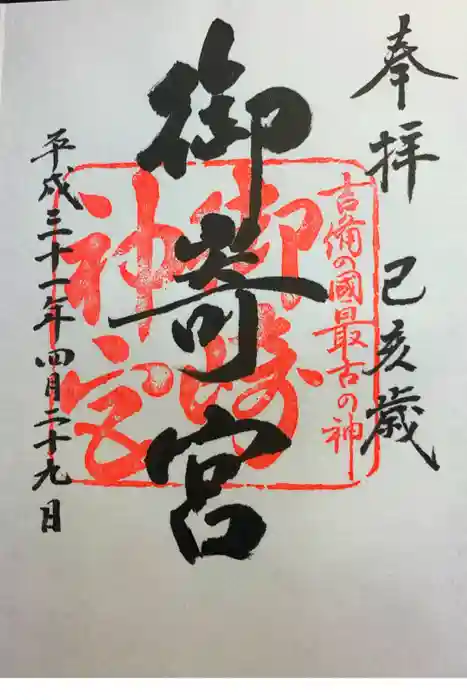 奉拝 己亥歳
吉備の國最古の神
御嵜宮
御崎
神宮
平成三十一年四月二十九日